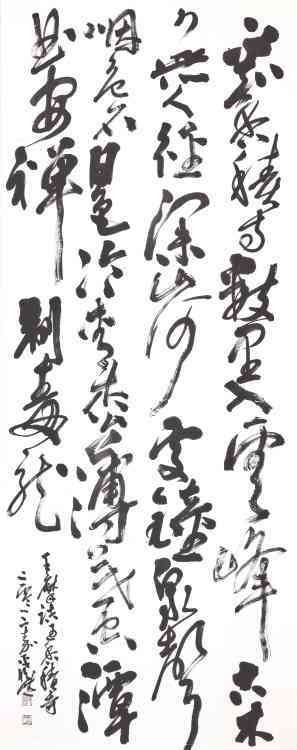 不知香積寺數里入雲峰古木
無人徑深山何處鐘泉聲
咽危石日色冷青松薄暮空潭
曲安禪制毒龍
王維詩過香積寺